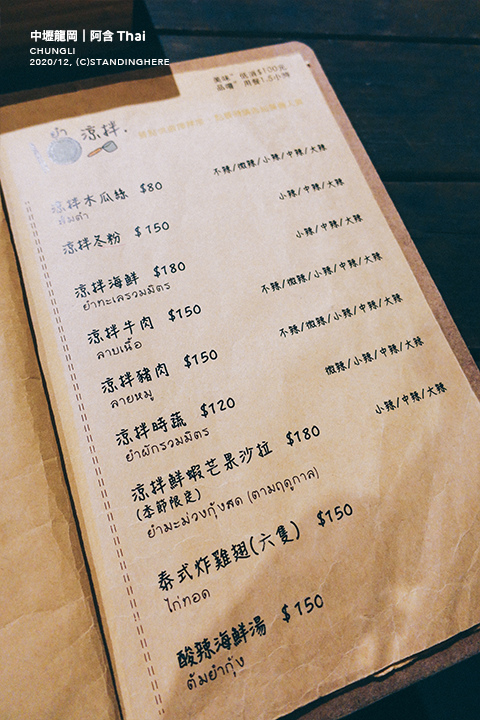 中壢龍岡｜阿含 Thai
CHUNGLI
2020/12, (C)STANDINGHERE
美味" 低消$100元
品嚐" 用餐1.5小時
涼拌.
涼拌木瓜絲 $80 不辣/微辣/小辣/中辣/大辣
ส้มตำ
涼拌冬粉 $150 小辣/中辣/大辣
涼拌海鮮 $180 小辣/中辣/大辣
ยำทะเลรวมมิตร
涼拌牛肉 $150 不辣/微辣/小辣/中辣/大辣
ลาบเนื้อ
涼拌豬肉 $150 不辣/微辣/小辣/中辣/大辣
ลายหมู
涼拌時蔬 $120 微辣/小辣/中辣/大辣
ยำผักรวมมิตร
涼拌鮮蝦芒果沙拉 $180 小辣/中辣/大辣
(季節限定)
ยำมะม่วงกุ้งสด (ตามฤดูกาล)
泰式炸雞翅(六隻) $150
ไก่ทอด
酸辣海鮮湯 $150
ต้มยำกุ้ง